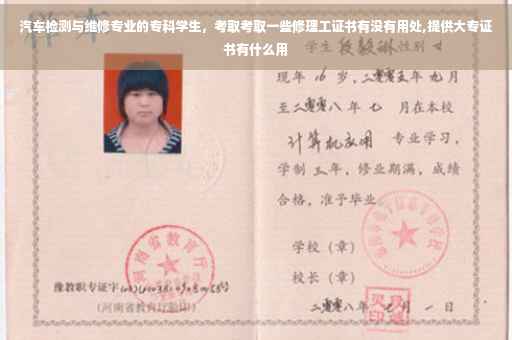 汽车检测与维修专业的专科学生，考取考取一些修理工证书有没有用处,提供大专证
书有什么用
样本
学生 性别 女
现年 16 岁，二零零五年 九 月
至二零零八年 七 月在本校
计算机应用 专业学习，
学制 三 年，修业期满，成绩
合格，准予毕业
学校（章）
河南省教育厅
校长（章）
豫教职专证字
（河南省教育厅验印）
二零零八年 月 一 日